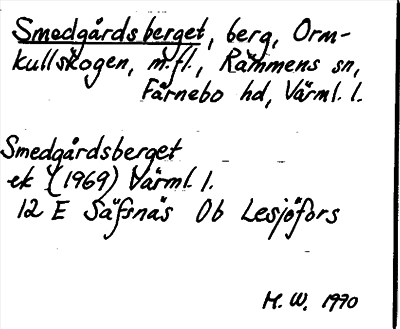 Smedgårdsberget, berg, Orm-
kullskogen, m.fl., Rämmens sn,
Färnebo hd, Värml. l.
Smedgårdsberget
ek (1969) Värml. l.
12 E Säfsnäs Ob Lesjöfors
M. W. 1970